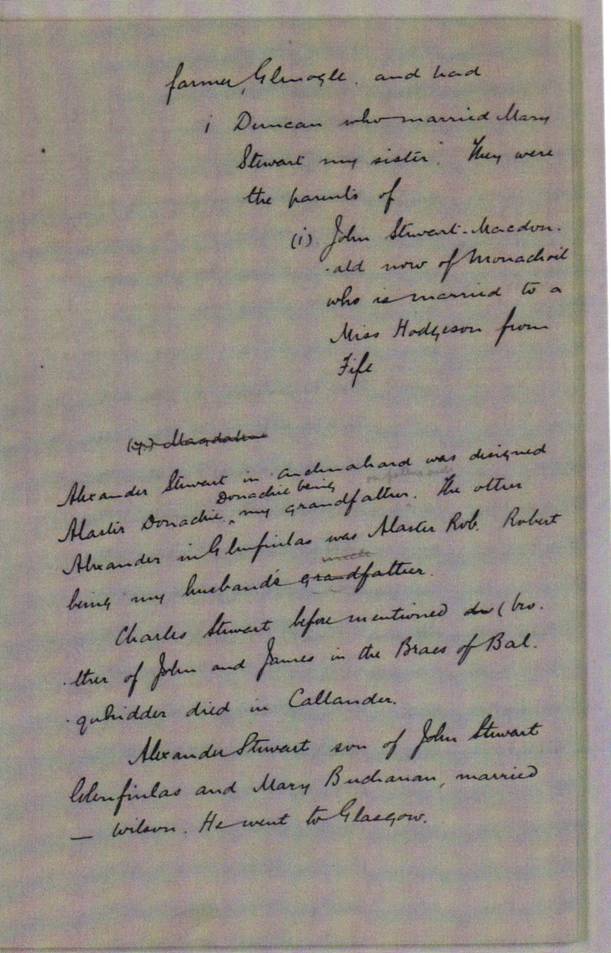 farmer, Glenogle. and had
i Duncan who married Mary
Stewart my sister. They were
the parents of
(i) John Stewart-Macdon-
-ald now of Monachoil
who is married to a
Miss Hodgeson from
Fife
Alexander Stewart in was designed
Donachie being on father's side
Alaster Donachie, my grandfather. The other
Alexander in Glenfinlas was Alaster Rob. Robert
uncle
being my husband's grandfather.
Charles Stewart before mentioned (bro-
-ther of John and James in the Braes of Bal-
-quhidder died in Callander.
Alexander Stewart son of John Stewart
Glenfinlas and Mary Buchanan, married
— Wilson. He went to Glasgow.